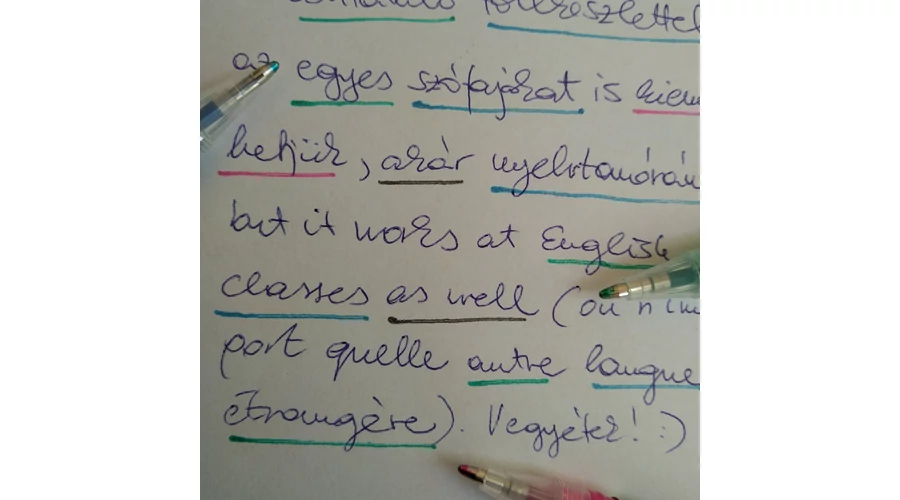 az egyes szófajokat is
betjük, akár nyelvtanórán
but it works at English
classes as well (ou n'im
port quelle autre langue
étrangère). Vegyétek! :)